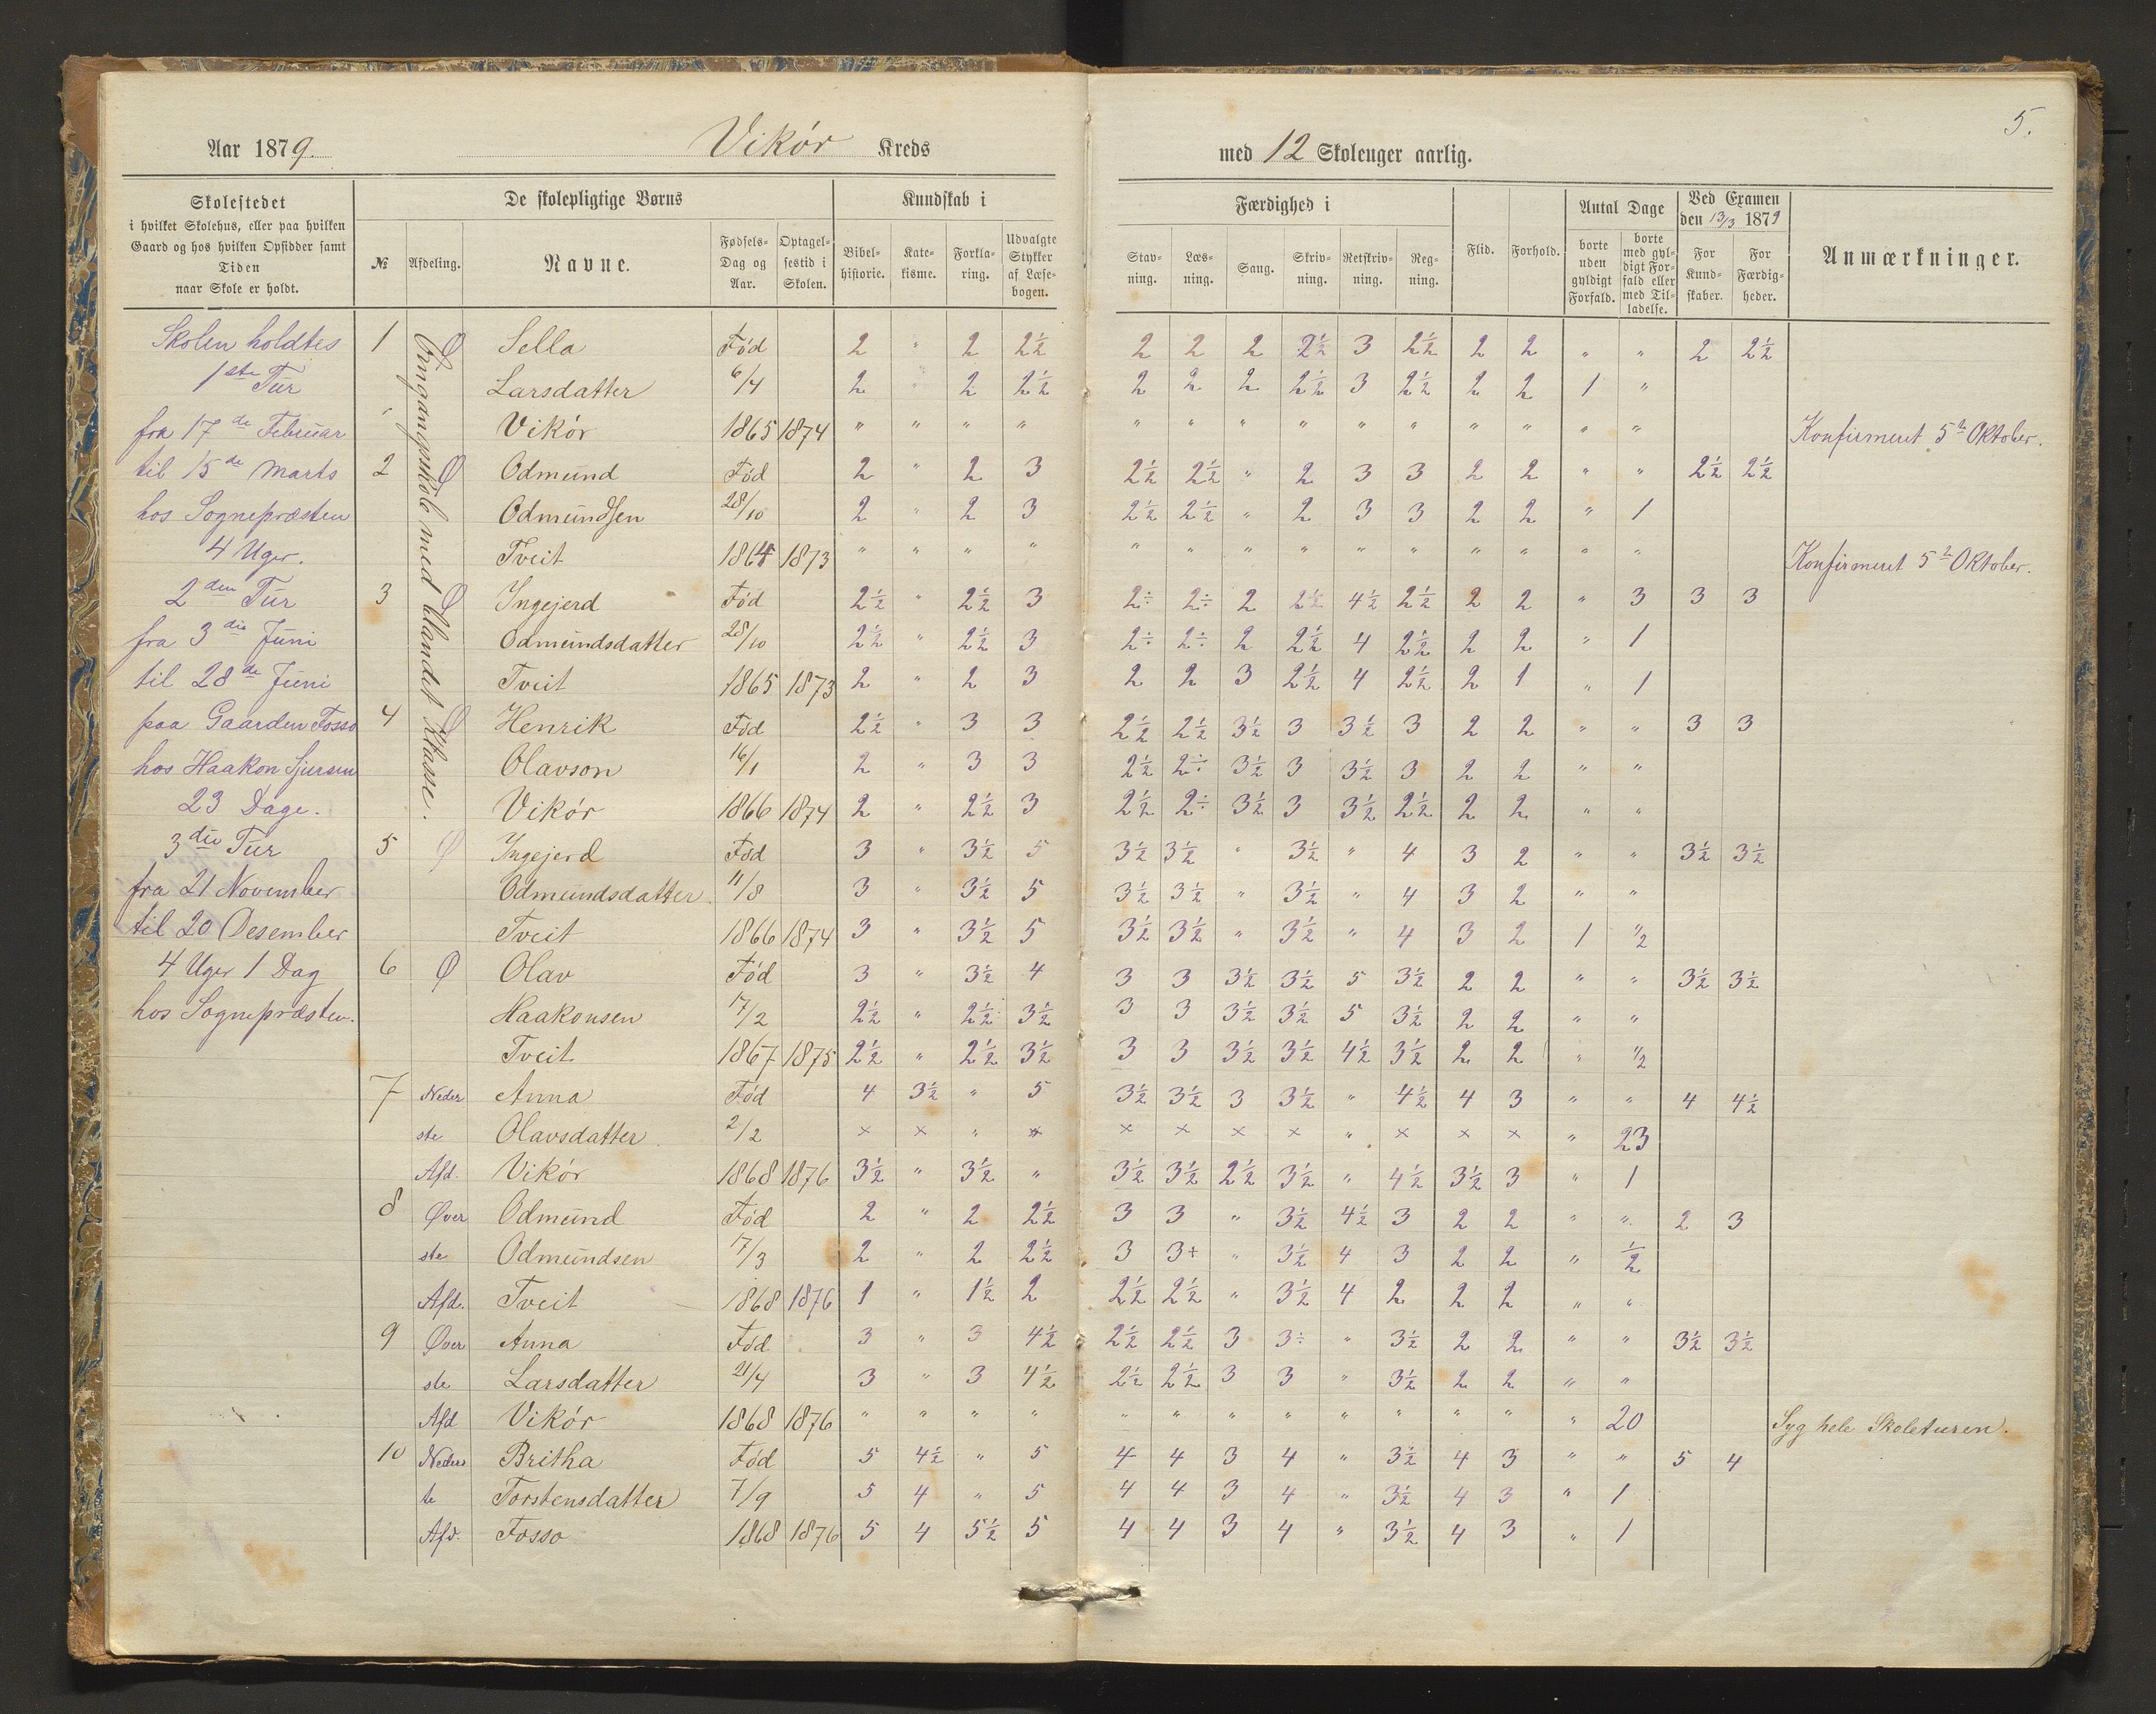 5.
Aar 1879. Vikør Kreds med 12 Skoleuger aarlig.
Skolestedet i hvilket Skolehus, eller paa hvilken Gaard og hos hvilken Opsidder samt Tiden naar Skole er holdt.
De skolepligtige Børns
№ Afdeling. Navne. Fødsels-Dag og Aar. Optagelsestid i Skolen.
Kundskab i
Bibelhistorie. Katekisme. Forklaring. Udvalgte Stykker af Læsebogen.
Færdighed i
Stavning. Læsning. Sang. Skrivning. Retskrivning. Regning.
Flid. Forhold.
Antal Dage
borte uden gyldigt Forfald. borte med gyldigt Forfald eller med Tilladelse.
Ved Examen den 13/3 1879
For Kundskaber. For Færdigheder.
Anmærkninger.
Skolen holdtes
1ste Tur
fra 17de Februar
til 15de Marts
hos Sognepræsten
4 Uger.
2den Tur
fra 3die Juni
til 28de Juni
paa Gaarden Fosso
hos Haakon Sjursen
23 Dage.
3die Tur
fra 21 November
til 20 Desember
4 Uger 1 Dag
hos Sognepræsten.
Omgangsskole med blandet Klasse.
1 Ø Sella Fød 2 " 2 2½ 2 2 2 2½ 3 2½ 2 2 " " 2 2½
Larsdatter 6/4 2 " 2 2½ 2 2 2 2½ 3 2½ 2 2 1 "
Vikør 1865 1874 " " " " " " " " " " " " " " Konfirmeret 5te Oktober.
2 Ø Odmund Fød 2 " 2 3 2½ 2½ " 2 3 3 2 2 " " 2½ 2½
Odmundsen 28/10 2 " 2 3 2½ 2½ " 2 3 3 2 2 " 1
Tveit 1864 1873 " " " " " " " " " " " " " " Konfirmeret 5te Oktober.
3 Ø Ingejerd Fød 2½ " 2½ 3 2÷ 2÷ 2 2½ 4½ 2½ 2 2 " 3 3 3
Odmundsdatter 28/10 2½ " 2½ 3 2÷ 2÷ 2 2½ 4 2½ 2 2 " 1
Tveit 1865 1873 2 " 2 3 2 2 3 2½ 4 2½ 2 1 " 1
4 Ø Henrik Fød 2½ " 3 3 2½ 2½ 3½ 3 3½ 3 2 2 " " 3 3
Olavson 16/1 2 " 3 3 2½ 2÷ 3½ 3 3½ 3 2 2 " "
Vikør 1866 1874 2 " 2½ 3 2½ 2÷ 3½ 3 3½ 2½ 2 2 " "
5 Ø Ingejerd Fød 3 " 3½ 5 3½ 3½ " 3½ " 4 3 2 " " 3½ 3½
Odmundsdatter 11/8 3 " 3½ 5 3½ 3½ " 3½ " 4 3 2 " "
Tveit 1866 1874 3 " 3½ 5 3½ 3½ " 3½ " 4 3 2 1 ½
6 Ø Olav Fød 3 " 3½ 4 3 3 3½ 3½ 5 3½ 2 2 " " 3½ 3½
Haakonsen 17/2 2½ " 2½ 3½ 3 3 3½ 3½ 5 3½ 2 2 " "
Tveit 1867 1875 2½ " 2½ 3½ 3 3 3½ 3½ 4½ 3½ 2 2 " ½
7 Neder Anna Fød 4 3½ " 5 3½ 3½ 3 3½ " 4½ 4 3 " " 4 4½
ste Olavsdatter 2/2 × × " × × × × × " × × × " 23
Afd. Vikør 1868 1876 3½ " 3½ " 3½ 3½ 2½ 3½ " 4½ 3½ 3 " 1
8 Øver Odmund Fød 2 " 2 2½ 3 3 " 3½ 4½ 3 2 2 " " 2 3
ste Odmundsen 17/3 2 " 2 2½ 3 3+ " 3½ 4 3 2 2 " ½
Afd. Tveit 1868 1876 1 " 1½ 2 2½ 2½ " 3½ 4 2 2 2 " "
9 Øver Anna Fød 3 " 3 4½ 2½ 2½ 3 3÷ " 3½ 2 2 " " 3½ 3½
ste Larsdatter 21/4 3 " 3 4½ 2½ 2½ 3 3 " 3½ 2 2 " "
Afd Vikør 1868 1876 " " " " " " " " " " " " " 20 Syg hele Skoleturen.
10 Neders Britha Fød 5 4½ " 5 4 4 3 4 " 3½ 4 3 " " 5 4
te Torstensdatter 7/9 5 4 " 5 4 4 3 4 " 3½ 4 3 " 1
Afd. Fosso 1868 1876 5 4 5½ 5 4 4 3 4 " 3½ 4 3 " 1